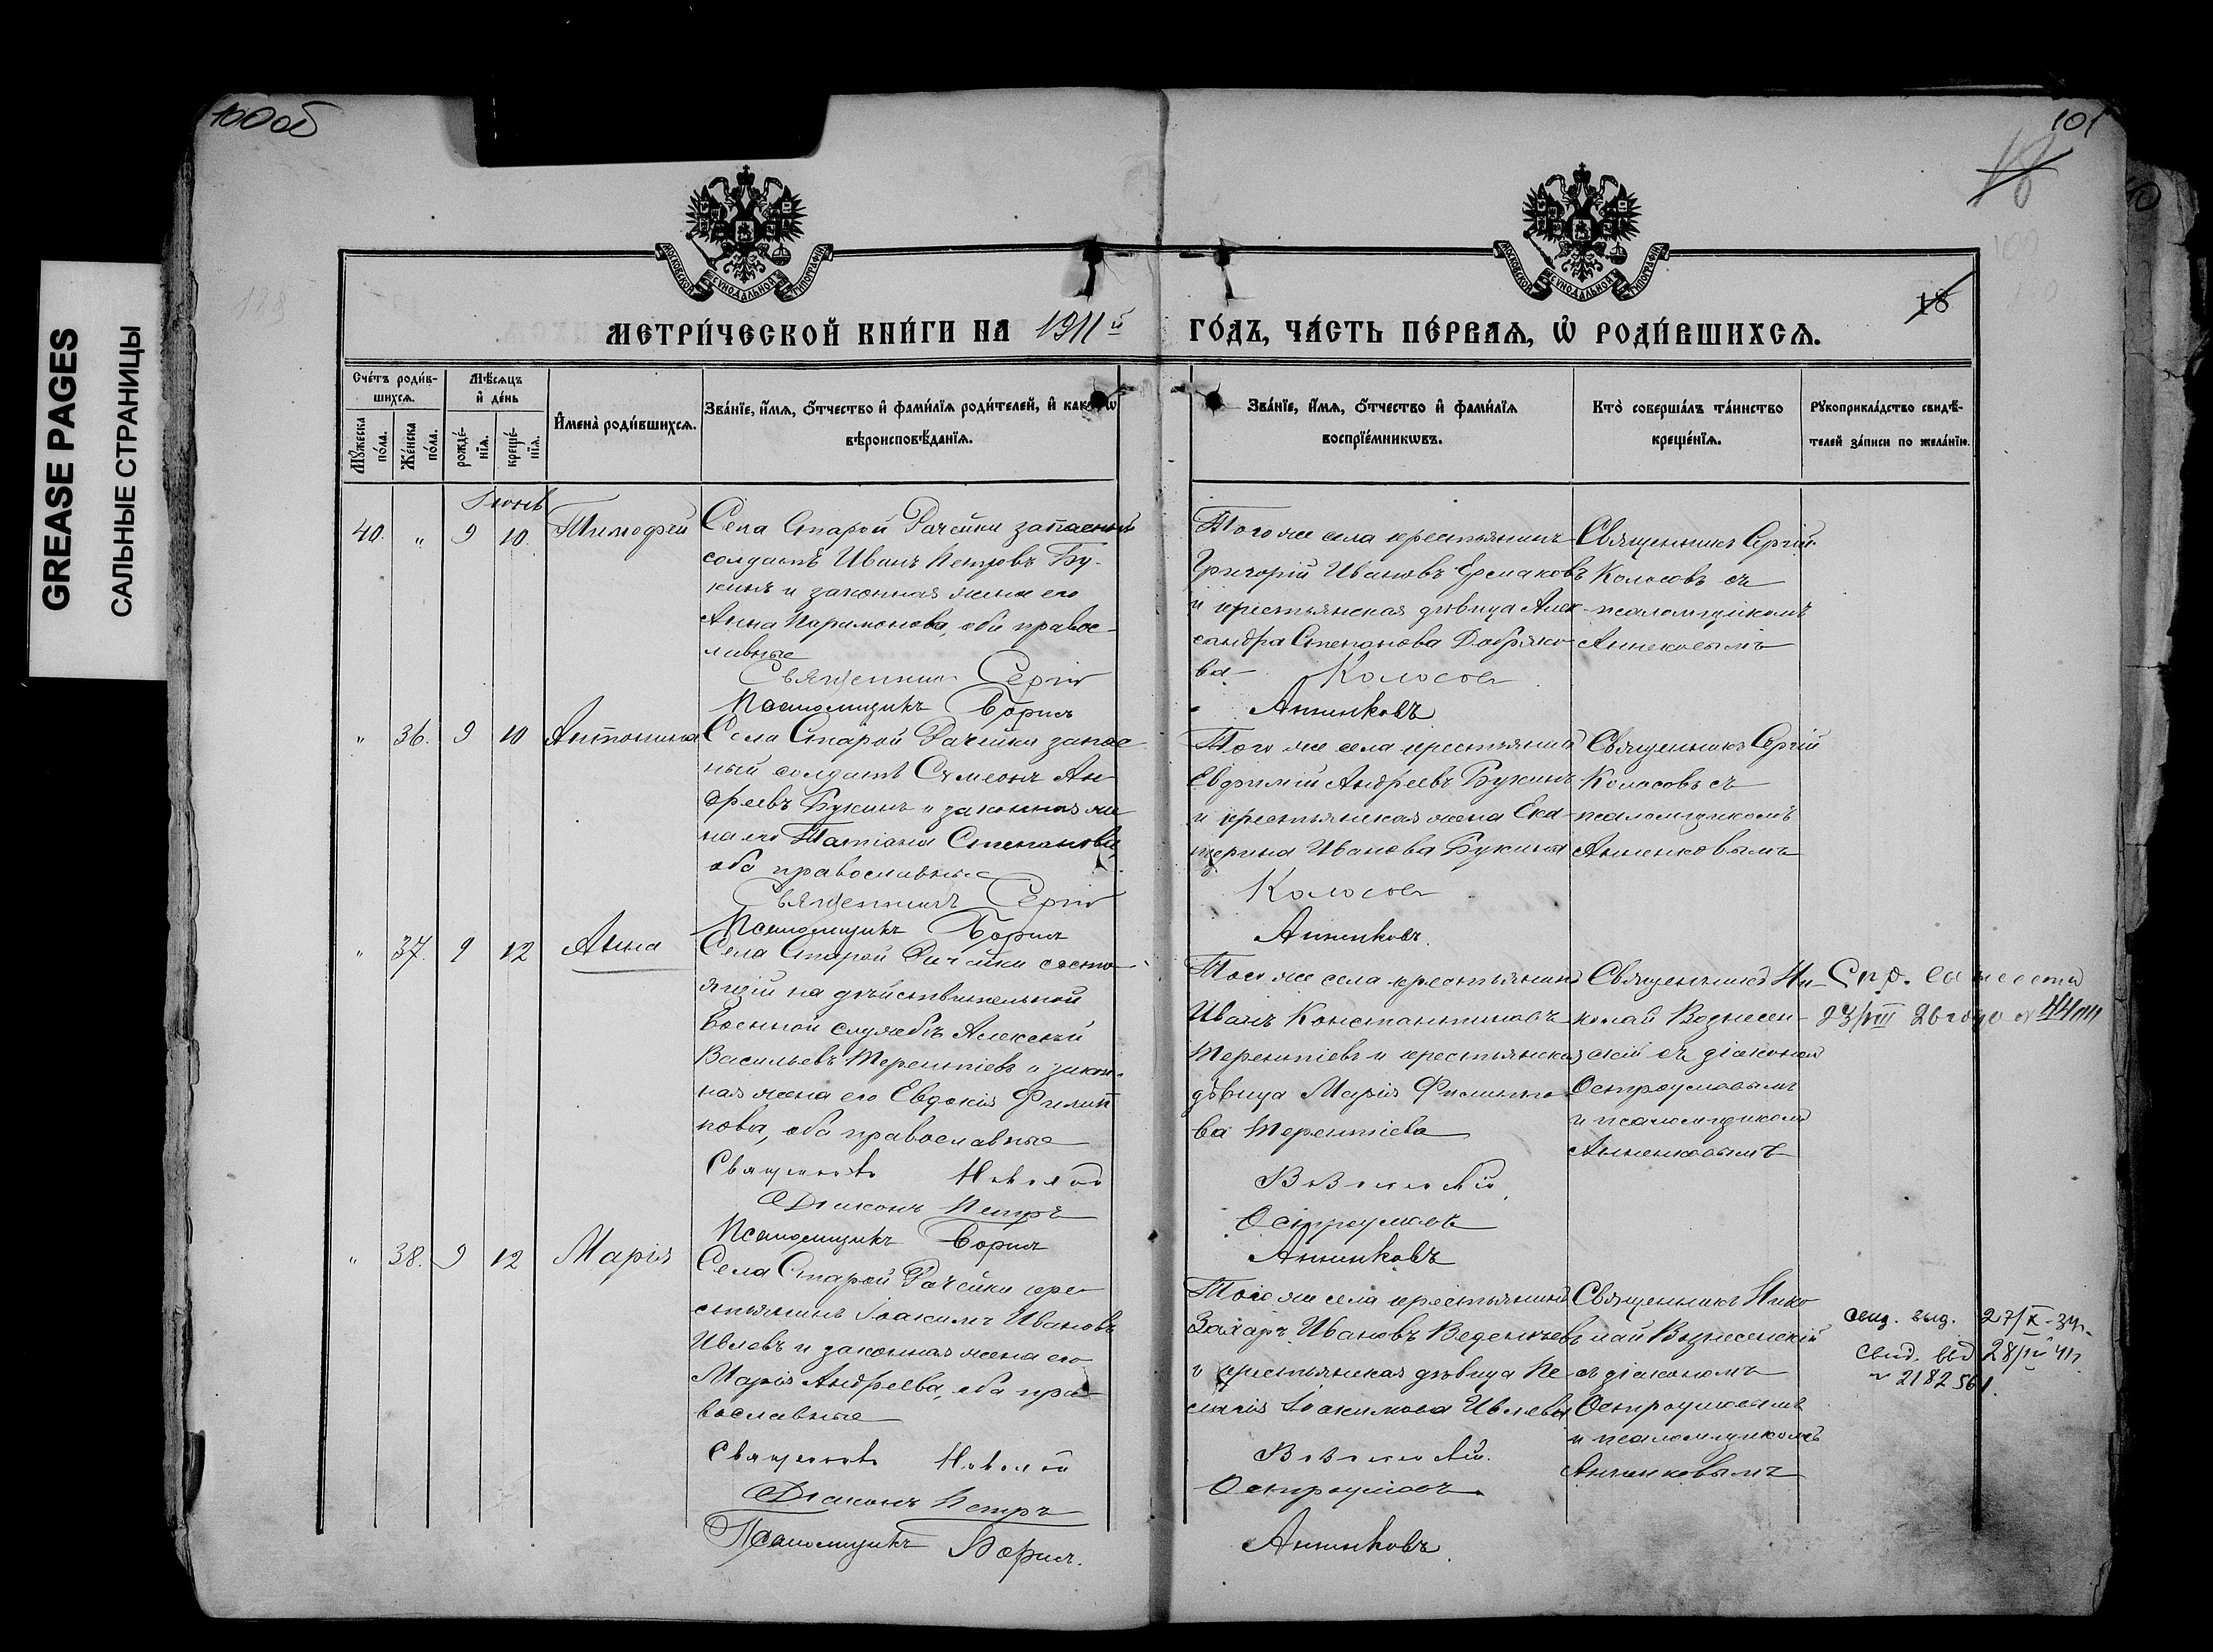 GREASE PAGES
САЛЬНЫЕ СТРАНИЦЫ
100об
101
18
18
МОСКОВСКОЙ СѴНОДАЛЬНОЙ ТИПОГРАФІИ
МОСКОВСКОЙ СѴНОДАЛЬНОЙ ТИПОГРАФІИ
МЕТРИ́ЧЕСКОЙ КНИ́ГИ НА 1911й
ГО́ДЪ, ЧА́СТЬ ПЕ́РВАѦ, Ѡ҆ РОДИ́ВШИХСѦ.
Сче́тъ роди́в-
шихсѧ.
Мꙋ́жеска
по́ла.
Же́нска
по́ла.
Мѣ́сѧцъ
и҆ де́нь
рожде́-
нїѧ.
креще́-
нїѧ.
И҆мена̀ роди́вшихсѧ.
Зва́нїе, и҆́мѧ, ѻ҆́тчество и҆ фами́лїѧ роди́телей, и҆ какогѡ
вѣроисповѣ́данїѧ.
Зва́нїе, и҆́мѧ, ѻ҆́тчество и҆ фами́лїѧ
воспрїе́мникѡвъ.
Кто̀ соверша́лъ та́инство
креще́нїѧ.
Рꙋкоприкла́дство свидѣ́-
телей за́писи по жела́нїю.
Іюнь
40. " 9 10. Тимофей
Села Старой Рачейки запасный
солдатъ Иванъ Петровъ Бу-
кинъ и законная жена его
Анна Парамонова, оба правос-
лавные
Священникъ Сергій
Псаломщикъ Борисъ
Того же села крестьянинъ
Григорій Ивановъ Ермаковъ
и крестьянская дѣвица Алек-
сандра Степанова Добряко-
ва
Колосовъ
Анненковъ
Священникъ Сергій
Колосовъ съ
псаломщикомъ
Анненковымъ
" 36. 9 10 Антонина
Села Старой Рачейки запас-
ный солдатъ Симеонъ Ан-
дреевъ Букинъ и законная же-
на его Татіана Степанова,
оба православные
Священникъ Сергій
Псаломщикъ Борисъ
Того же села крестьянинъ
Евфимій Андреевъ Букинъ
и крестьянская жена Ека-
терина Иванова Букина
Колосовъ
Анненковъ.
Священникъ Сергій
Колосовъ съ
псаломщикомъ
Анненковымъ
" 37. 9 12 Анна
Села Старой Рачейки состо-
ящій на дѣйствительной
военной службѣ Алексѣй
Васильевъ Терентіевъ и закон-
ная жена его Евдокія Филип-
пова, оба православные
Священникъ Николай
Діаконъ Петръ
Псаломщикъ Борисъ
Того же села крестьянинъ
Иванъ Константиновъ
Терентіевъ и крестьянская
дѣвица Марія Филиппо-
ва Терентіева
Вознесенскій
Остроумовъ
Анненковъ
Священникъ Ни-
колай Вознесен-
скій съ діакономъ
Остроумовымъ
и псаломщикомъ
Анненковымъ
23/VIII 26 года
" 38. 9 12 Марія
Села Старой Рачейки кре-
стьянинъ Іоакимъ Ивановъ
Ивлевъ и законная жена его
Марія Андреева, оба пра-
вославные
Священникъ Николай
Діаконъ Петръ
Псаломщикъ Борисъ.
Того же села крестьянинъ
Захаръ Ивановъ Веденичевъ
и крестьянская дѣвица Пе-
лагія Іоакимова Ивлева
Вознесенскій.
Остроумовъ
Анненковъ
Священникъ Нико-
лай Вознесенскій
съ діакономъ
Остроумовымъ
и псаломщикомъ
Анненковымъ
свид. выд. 27/X-34г.
свид. выд 28/IV 41г